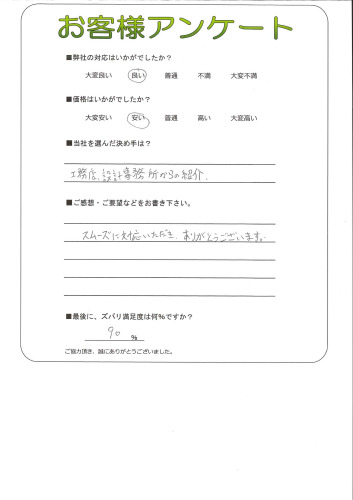 お客様アンケート
■弊社の対応はいかがでしたか？
大変良い　良い　普通　不満　大変不満
■価格はいかがでしたか？
大変安い　安い　普通　高い　大変高い
■当社を選んだ決め手は？
工務店、設計事務所からの紹介.
■ご感想・ご要望などをお書き下さい。
スムーズに対応いただき、ありがとうございます。
■最後に、ズバリ満足度は何%ですか？
90 %
ご協力頂き、誠にありがとうございました。